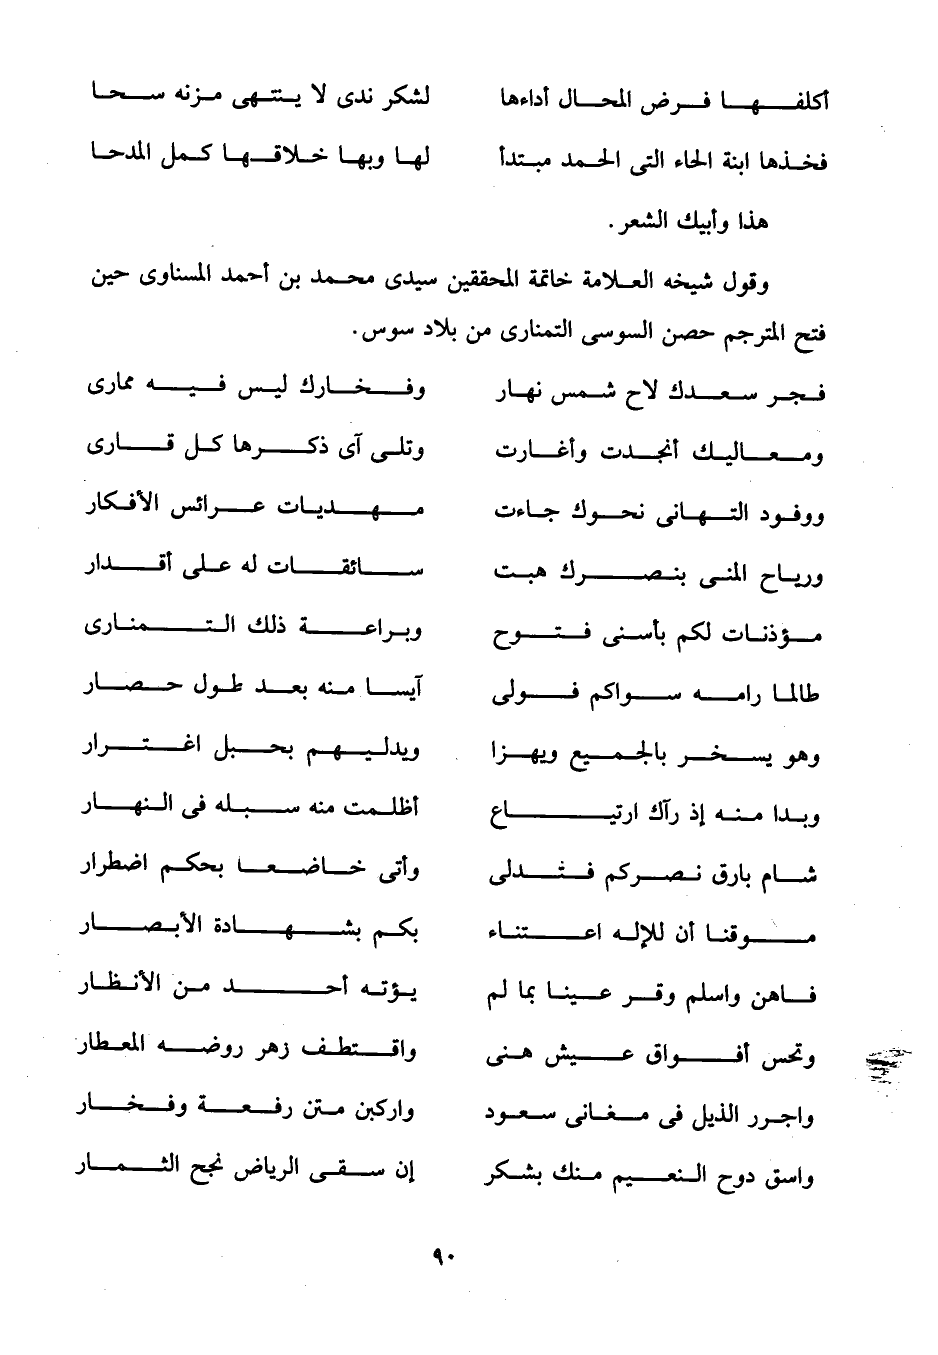 أكلفها فرض المحال أداءها لشكر ندى لا ينتهى مزنه سحا
فخذها ابنة الحاء التى الحمد مبتدأ لها وبها خلاقها كمل المدحا
هذا وأبيك الشعر .
وقول شيخه العلامة خاتمة المحققين سيدى محمد بن أحمد المسناوى حين
فتح المترجم حصن السوسى التمنارى من بلاد سوس.
فجر سعدك لاح شمس نهار وفخارك ليس فيه ممارى
ومعاليك أنجدت وأغارت وتلى آى ذكرها كل قارى
ووفود التهانى نحوك جاءت مهديات عرائس الأفكار
ورياح المنى بنصرك هبت سائقات له على أقدار
مؤذنات لكم بأسنى فتوح وبراعة ذلك التمنارى
طالما رامه سواكم فولى آيسا منه بعد طول حصار
وهو يسخر بالجميع ويهزا ويدليهم بحبل اغترار
وبدا منه إذ رآك ارتياع أظلمت منه سبله فى النهار
شام بارق نصركم فتدلى وأتى خاضعا بحكم اضطرار
موقنا أن للإله اعتناء بكم بشهادة الأبصار
فاهن واسلم وقر عينا بما لم يؤته أحد من الأنظار
وتحس أفواق عيش هنى واقتطف زهر روضه المعطار
واجرر الذيل فى مغانى سعود واركبن متن رفعة وفخار
واسق دوح النعيم منك بشكر إن سقى الرياض نجح الثمار
٩٠